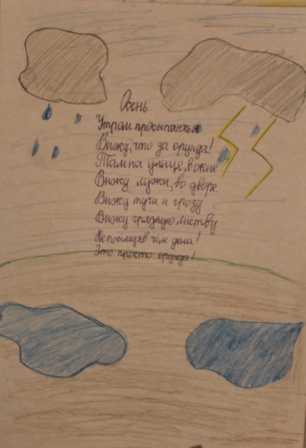 Осень
Утром просыпаюсь я
Вижу, что за ерунда!
Там на улице, в окне
Вижу лужи, во дворе
Вижу тучи и грозу
Вижу грязную листву
Не пойму, в чём дела!
Это просто ерунда!